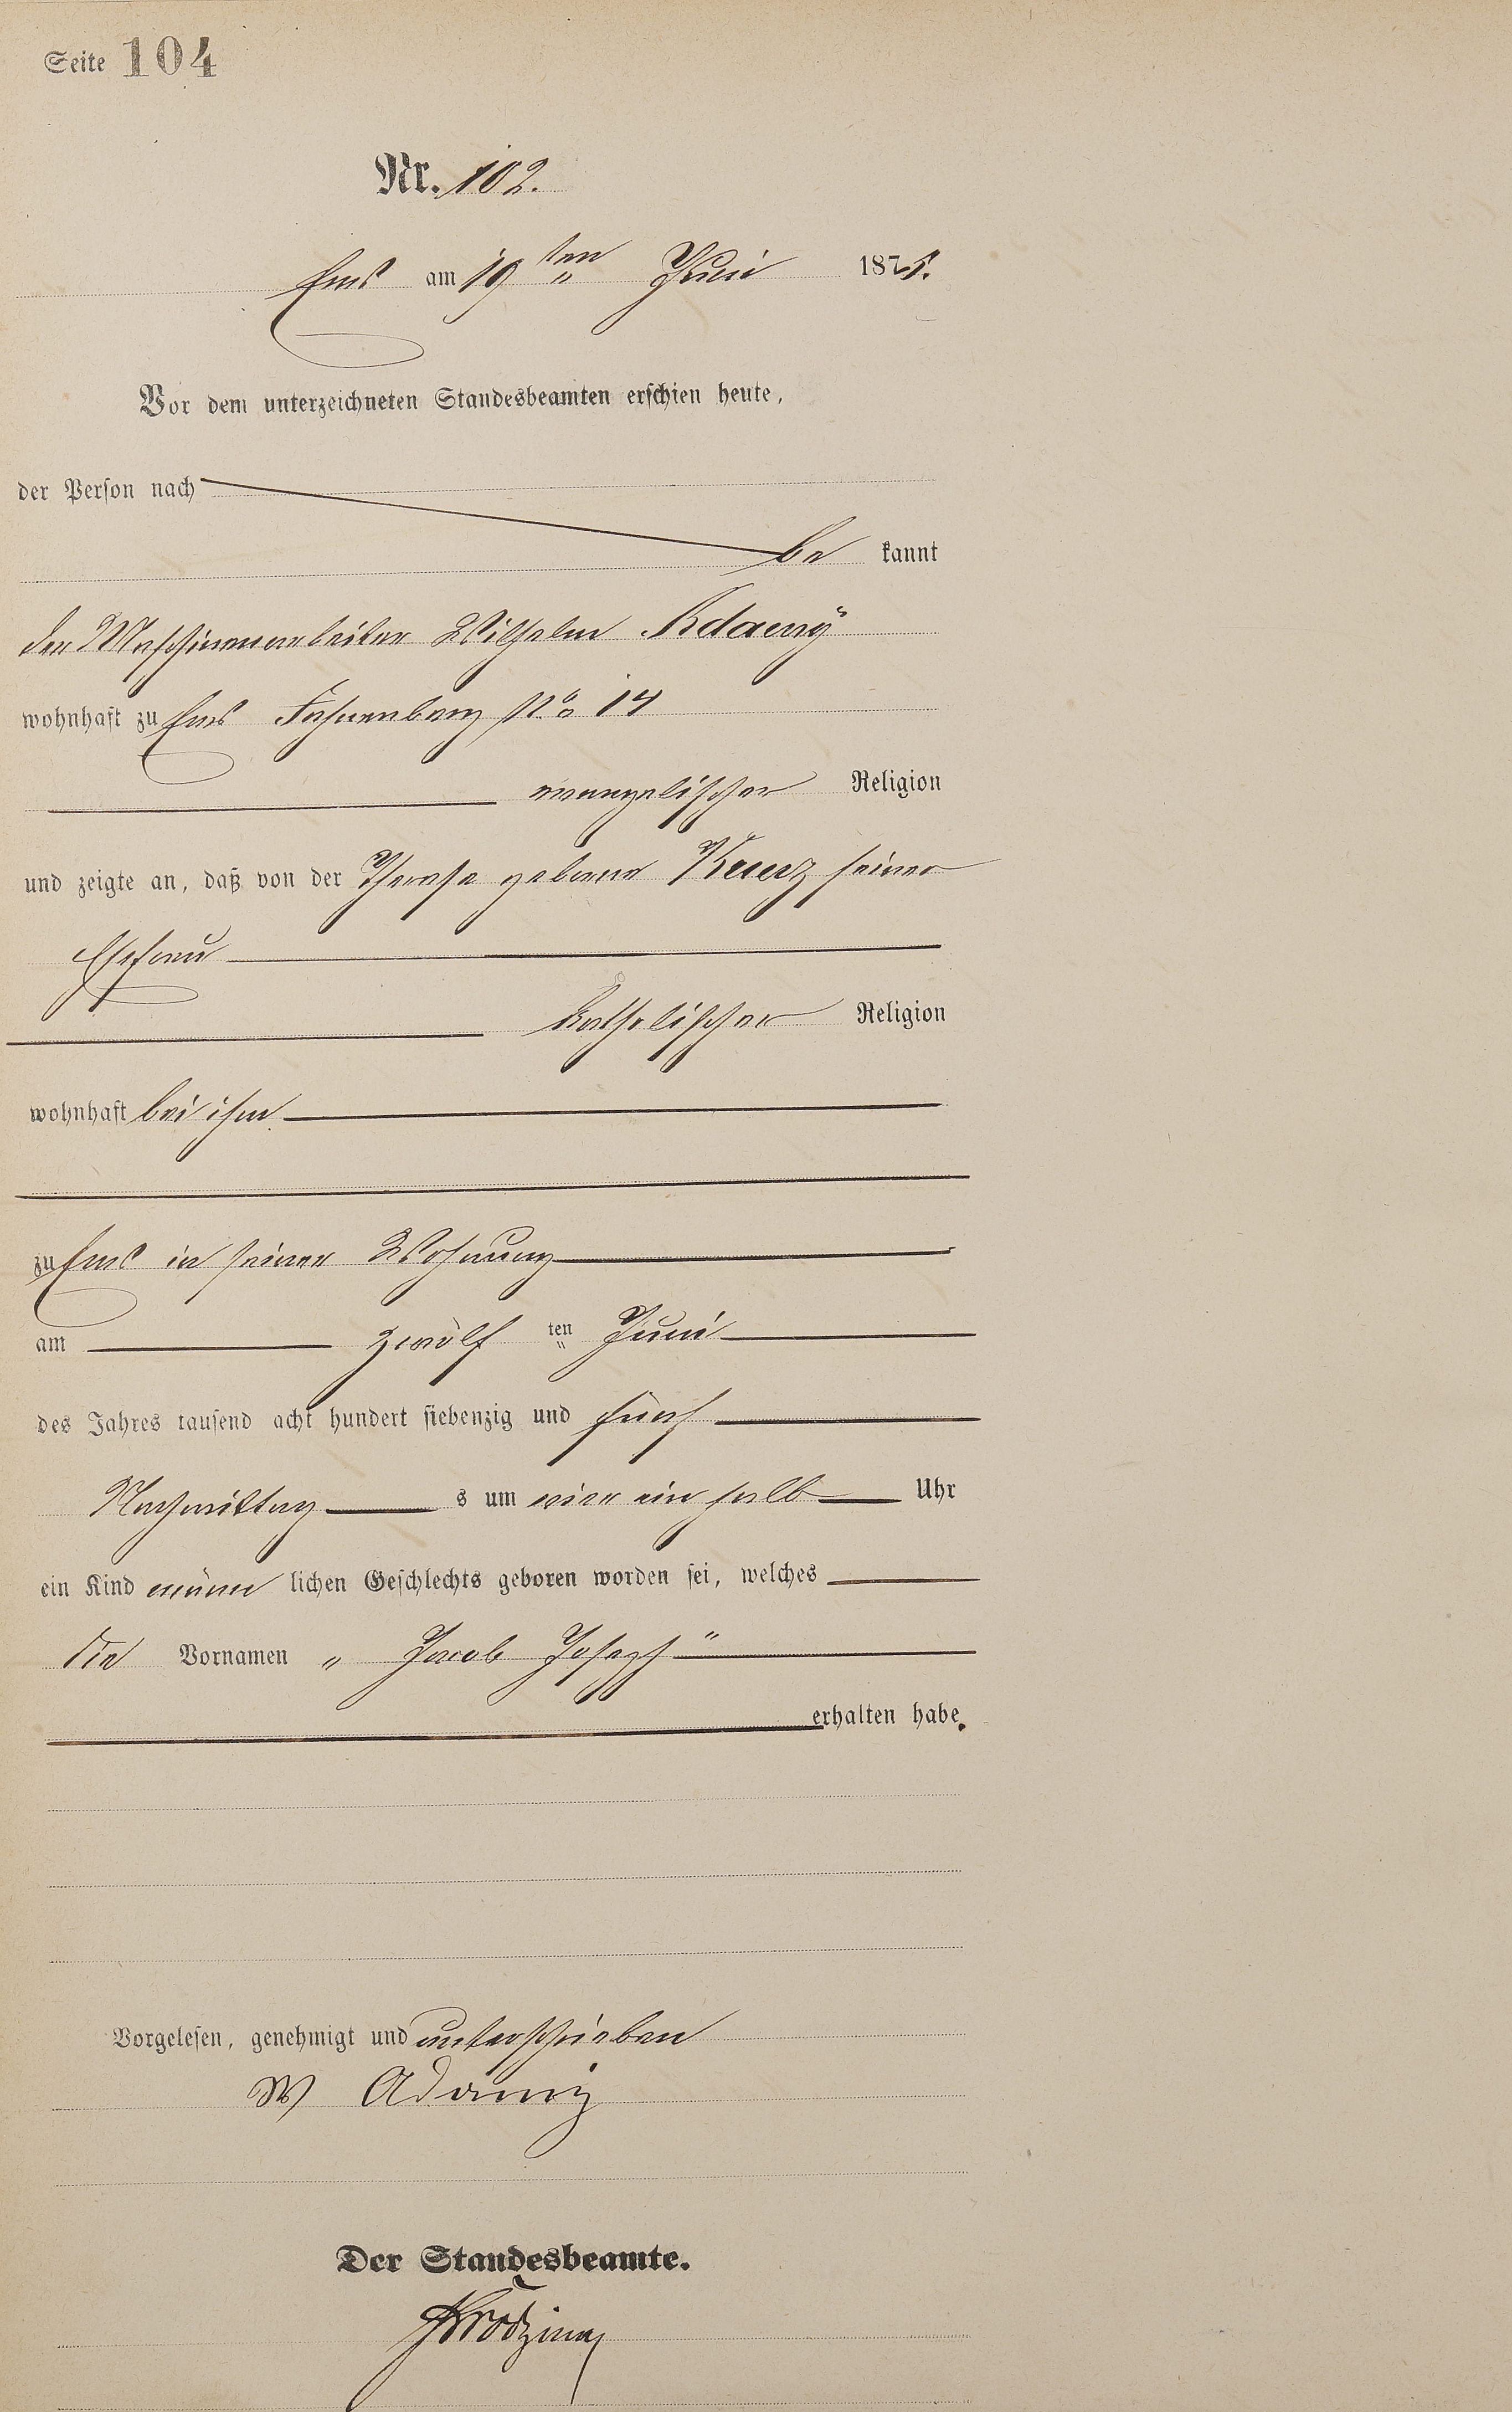 Seite 104
Nr. 102.
Ems am 19ten Juni 1875.
Vor dem unterzeichneten Standesbeamten erschien heute,
der Person nach
be kannt
der Maschinenarbeiter Wilhelm Adamÿ
wohnhaft zu Ems No 14
evangelischer Religion
und zeigte an, daß von der Therese geborne Kunz seiner
Ehefrau
katholischer Religion
wohnhaft bei ihm
zu Ems in seiner Wohnung
am zwölf ten Juni
des Jahres tausend acht hundert siebenzig und fünf
Nachmittag s um vier ein halb Uhr
ein Kind männ lichen Geschlechts geboren worden sei, welches
die Vornamen „ Jacob Joseph “
erhalten habe.
Vorgelesen, genehmigt und unterschrieben
W Adamy
Der Standesbeamte.